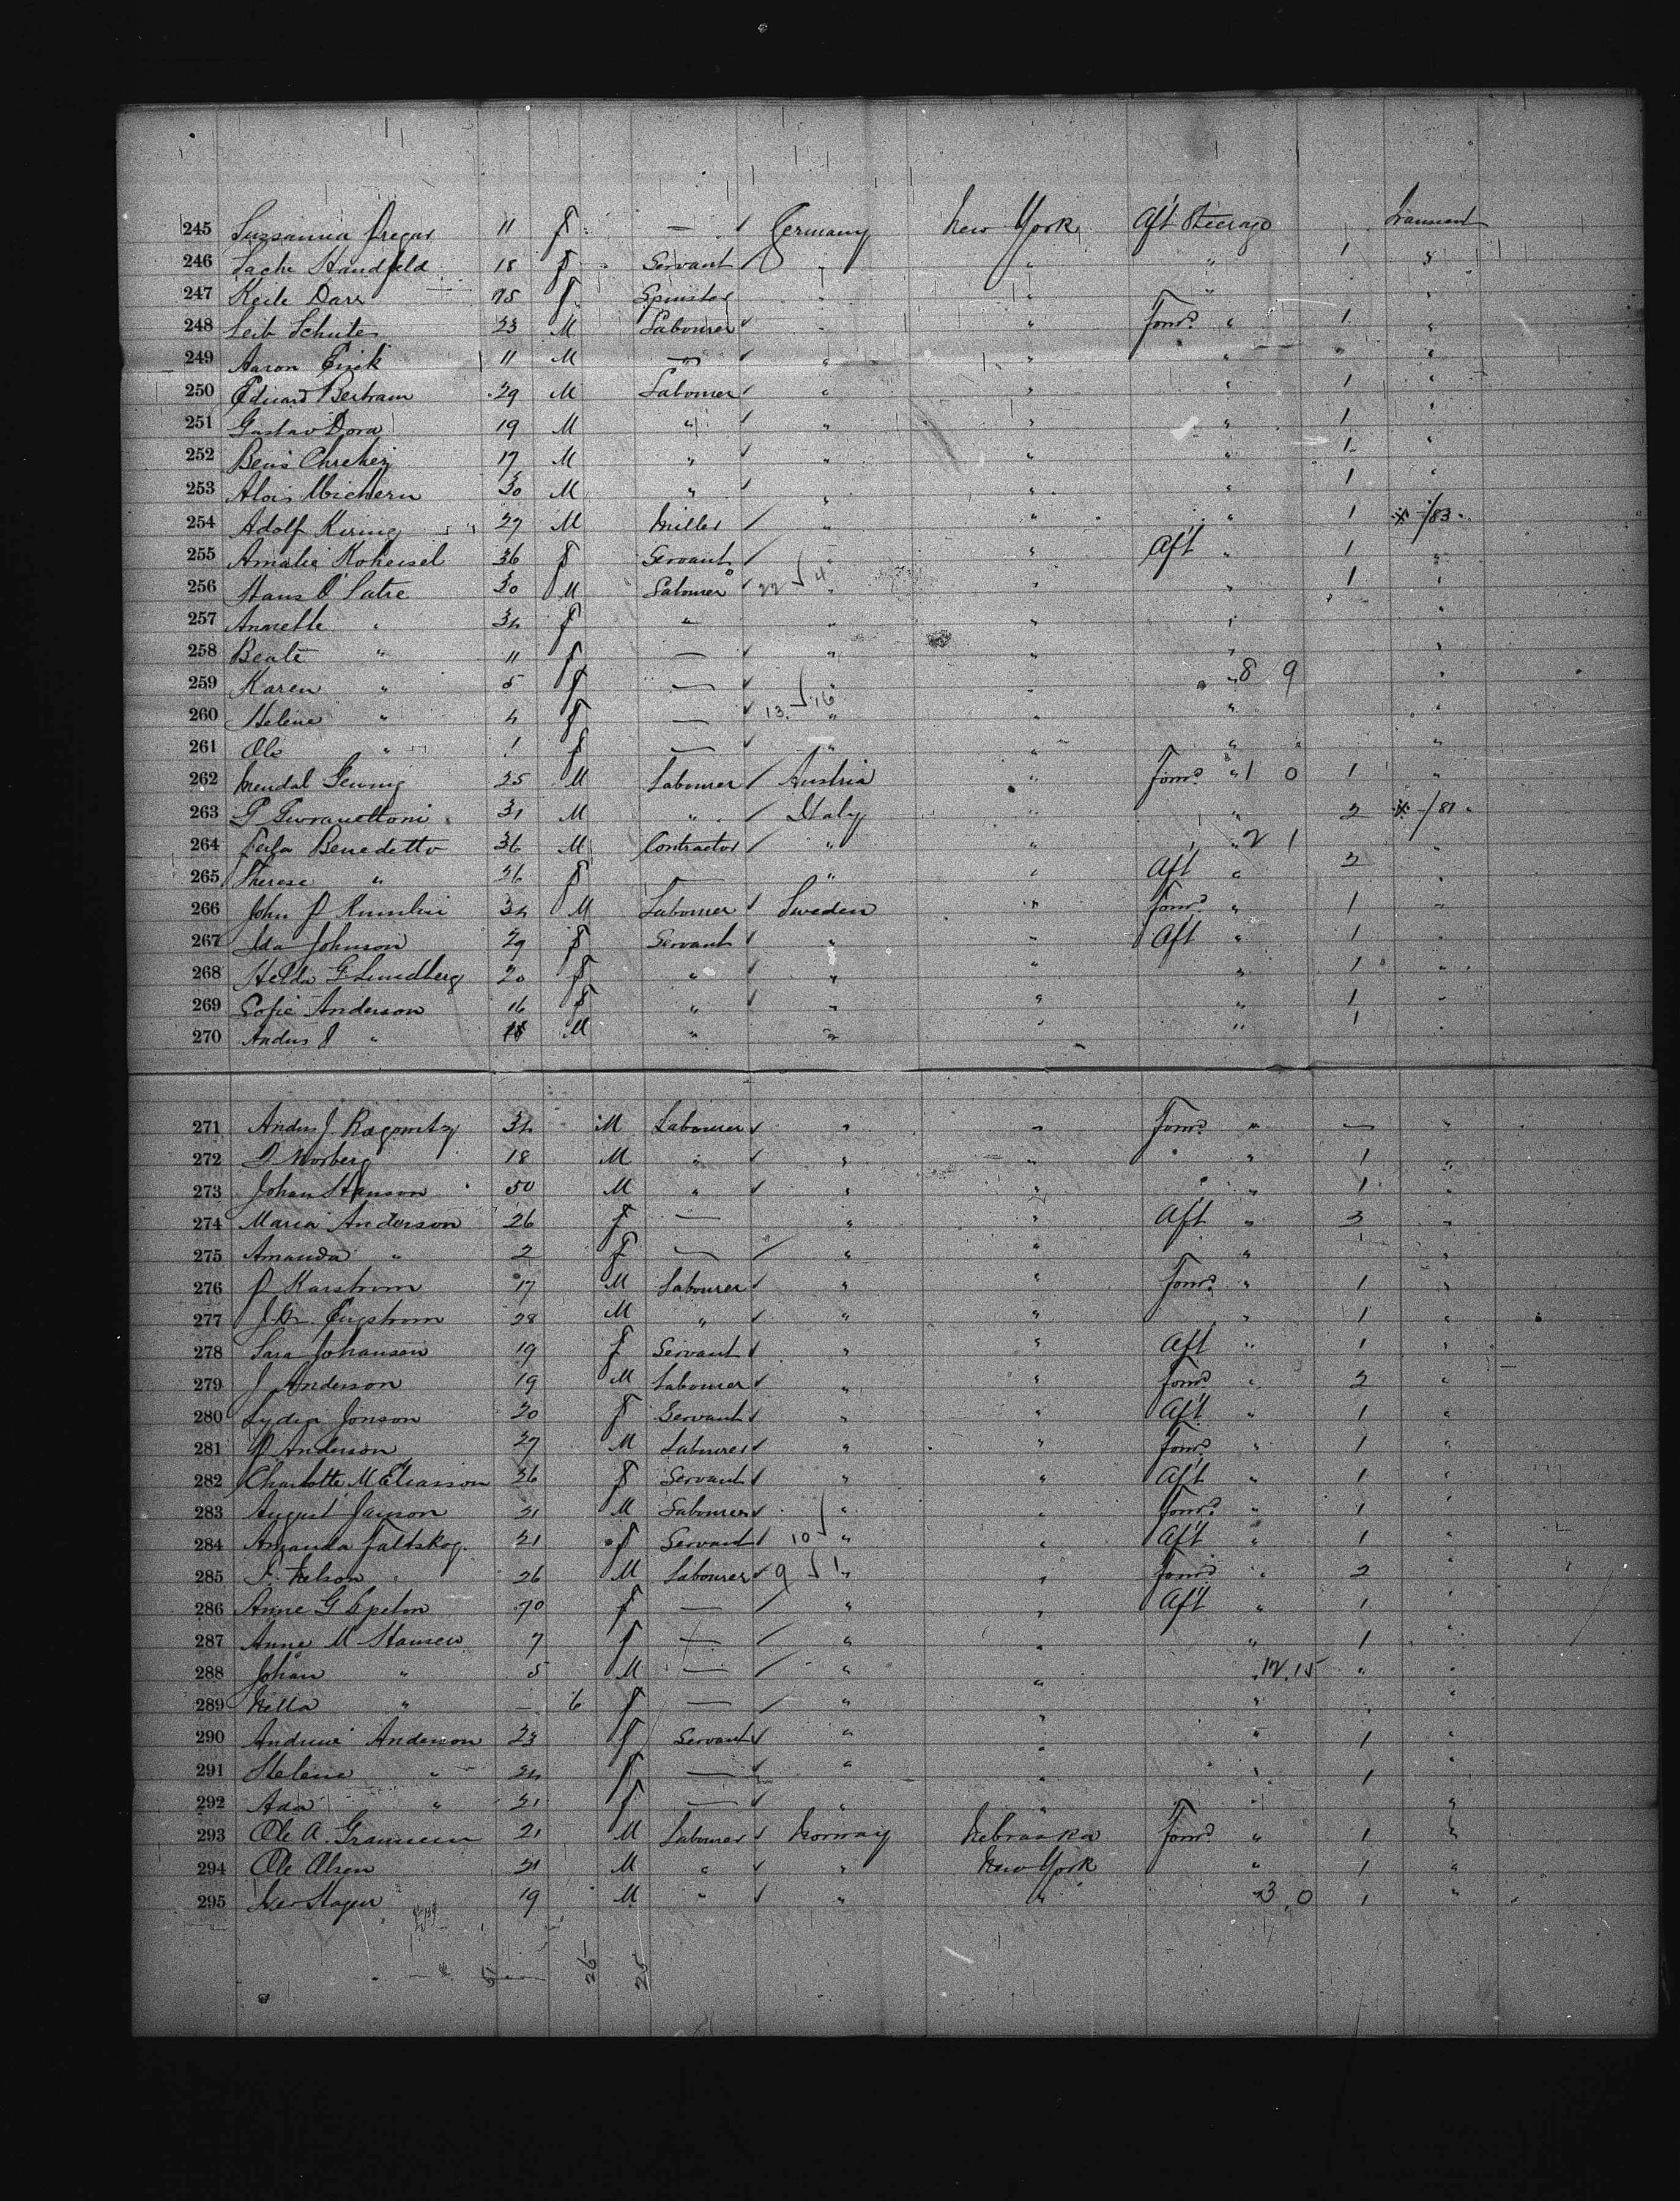 245 Sussanna Pregar 11 f — ✓ Germany New York Aft Steerage Transient
246 Sache Standfeld 18 f Servant / " " " 1 "
247 Keile Darr 75 f Spinster " " " "
248 Leib Schutes 23 M Labourer ✓ " " Forwd " 1 "
249 Aaron 11 M — ✓ " " " "
250 Eduard Bertram 29 M Labourer ✓ " " " 1 "
251 Gustav Dora 19 M " ✓ " " " 1 "
252 17 M " ✓ " " " 1 "
253 Alois 30 M " ✓ " " " 1 "
254 Adolf Kiring 27 M Miller / " " " 1 ※ -/83-
255 Amalie Koheisel 36 f Servant / " " Aft " 1 "
256 Hans O Satre 30 M Labourer ✓ " " " 1 "
257 Annette " 34 f " " " " "
258 Beate " 11 f — ✓ " " " "
259 Karen " 5 f — ✓ " " " 8 9 "
260 Helene " 4 f — ✓ 13. 16 " " " "
261 Ole " 1 f — ✓ " " " "
262 Mendel 25 M Labourer / Austria " Forwd " 1 0 1 "
263 G 31 M " / Italy " " 2 ※ -/81-
264 Benedetto 36 M Contractor / " " " 2 1 "
265 Therese " 26 f — " " Aft " 2 "
266 John P 34 M Labourer ✓ Sweden " Forwd " 1 "
267 Ida Johnson 29 f Servant ✓ " " Aft " 1 "
268 Helda G Lundberg 20 f " ✓ " " " 1 "
269 Sofie Anderson 16 f " ✓ " " " 1 "
270 Andus J " M " " " " 1 "
271 Andus J. 34 M Labourer ✓ " " Forwd " — "
272 Norberg 18 M " ✓ " " " 1 "
273 Johan Hanson 50 M " ✓ " " " 1 "
274 Maria Anderson 26 f — " " Aft " 3 "
275 Amanda " 2 f — / " " " "
276 P Karstrom 17 M Labourer ✓ " " Forwd " 1 "
277 Engstrom 28 M " ✓ " " " 1 "
278 Sara Johanson 19 f Servant ✓ " " Aft " 1 "
279 J Anderson 19 M Labourer ✓ " " Forwd " 2 "
280 Lydia Jonson 20 f Servant ✓ " " Aft " 1 "
281 P Anderson 27 M Labourer ✓ " " Forwd " 1 "
282 Charlotte M Eliasson 26 f Servant ✓ " " Aft " 1 "
283 August Janson 21 M Labourer ✓ " " Forwd " 1 "
284 Amanda Faltskog 21 f Servant ✓ 10 " " Aft " 1 "
285 P. Nelson 26 M Labourer ✓ 9 1 " " Forwd " 2 "
286 Anne G 70 f — / " " Aft " 1 "
287 Anne M Hansen 7 f — / " " " 1 "
288 Johan " 5 M — / " " " 12. 15 " "
289 Nella " — 6 f — / " " " "
290 Anderson 23 f Servant ✓ " " " 1 "
291 Helena " 24 f — ✓ " " " 1 "
292 Ada " 21 f — ✓ " " " "
293 Ole A. 21 M Labourer ✓ Norway Nebraska Forwd " 1 "
294 Ole Olsen 21 M " ✓ " New York " 1 "
295 Iver Hagen 19 M " ✓ " " " 3 0 1 "
51 26 25